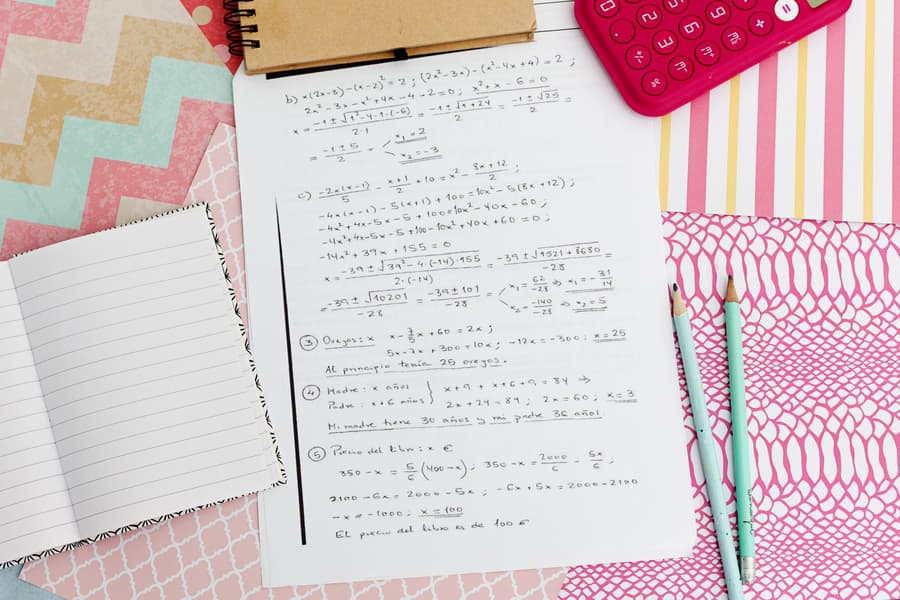 b) x(2x-3)-(x-2)² = 2 ; (2x²-3x)-(x²-4x+4) = 2 ;
2x²-3x-x²+4x-4-2=0 ; x²+x-6=0
x = (-1±√(1²-4·1·(-6)))/(2·1) = (-1±√(1+24))/2 = (-1±√25)/2 =
= (-1±5)/2 = x₁=2
x₂=-3
c) (-2x(x-1))/5 - (x+1)/2 + 10 = x² - (8x+12)/2 ;
-4x(x-1) - 5(x+1) + 100 = 10x² - 5(8x+12) ;
-4x²+4x-5x-5+100=10x²-40x-60 ;
-4x²+4x-5x-5+100-10x²+40x+60=0 ;
-14x²+39x+155=0
x = (-39±√(39²-4·(-14)·155))/(2·(-14)) = (-39±√(1521+8680))/-28 =
= (-39±√10201)/-28 = (-39±101)/-28 = x₁ = 62/-28 ⇒ x₁ = -31/14
x₂ = -140/-28 ⇒ x₂ = 5
③ Ovejas: x x - 7/5 x + 60 = 2x ;
5x-7x+300=10x ; -12x=-300 ; x=25
Al principio tenía 25 ovejas.
④ Madre: x años } x+9+x+6+9=84 ⇒
Padre: x+6 años } 2x+24=84 ; 2x=60 ; x=3
Mi madre tiene 30 años y mi padre 36 años
⑤ Precio del libro: x €
350-x = 5/6 (400-x) ; 350-x = 2000/6 - 5x/6 ;
2100-6x=2000-5x ; -6x+5x=2000-2100
-x=-1000 ; x=100
El precio del libro es de 100 €